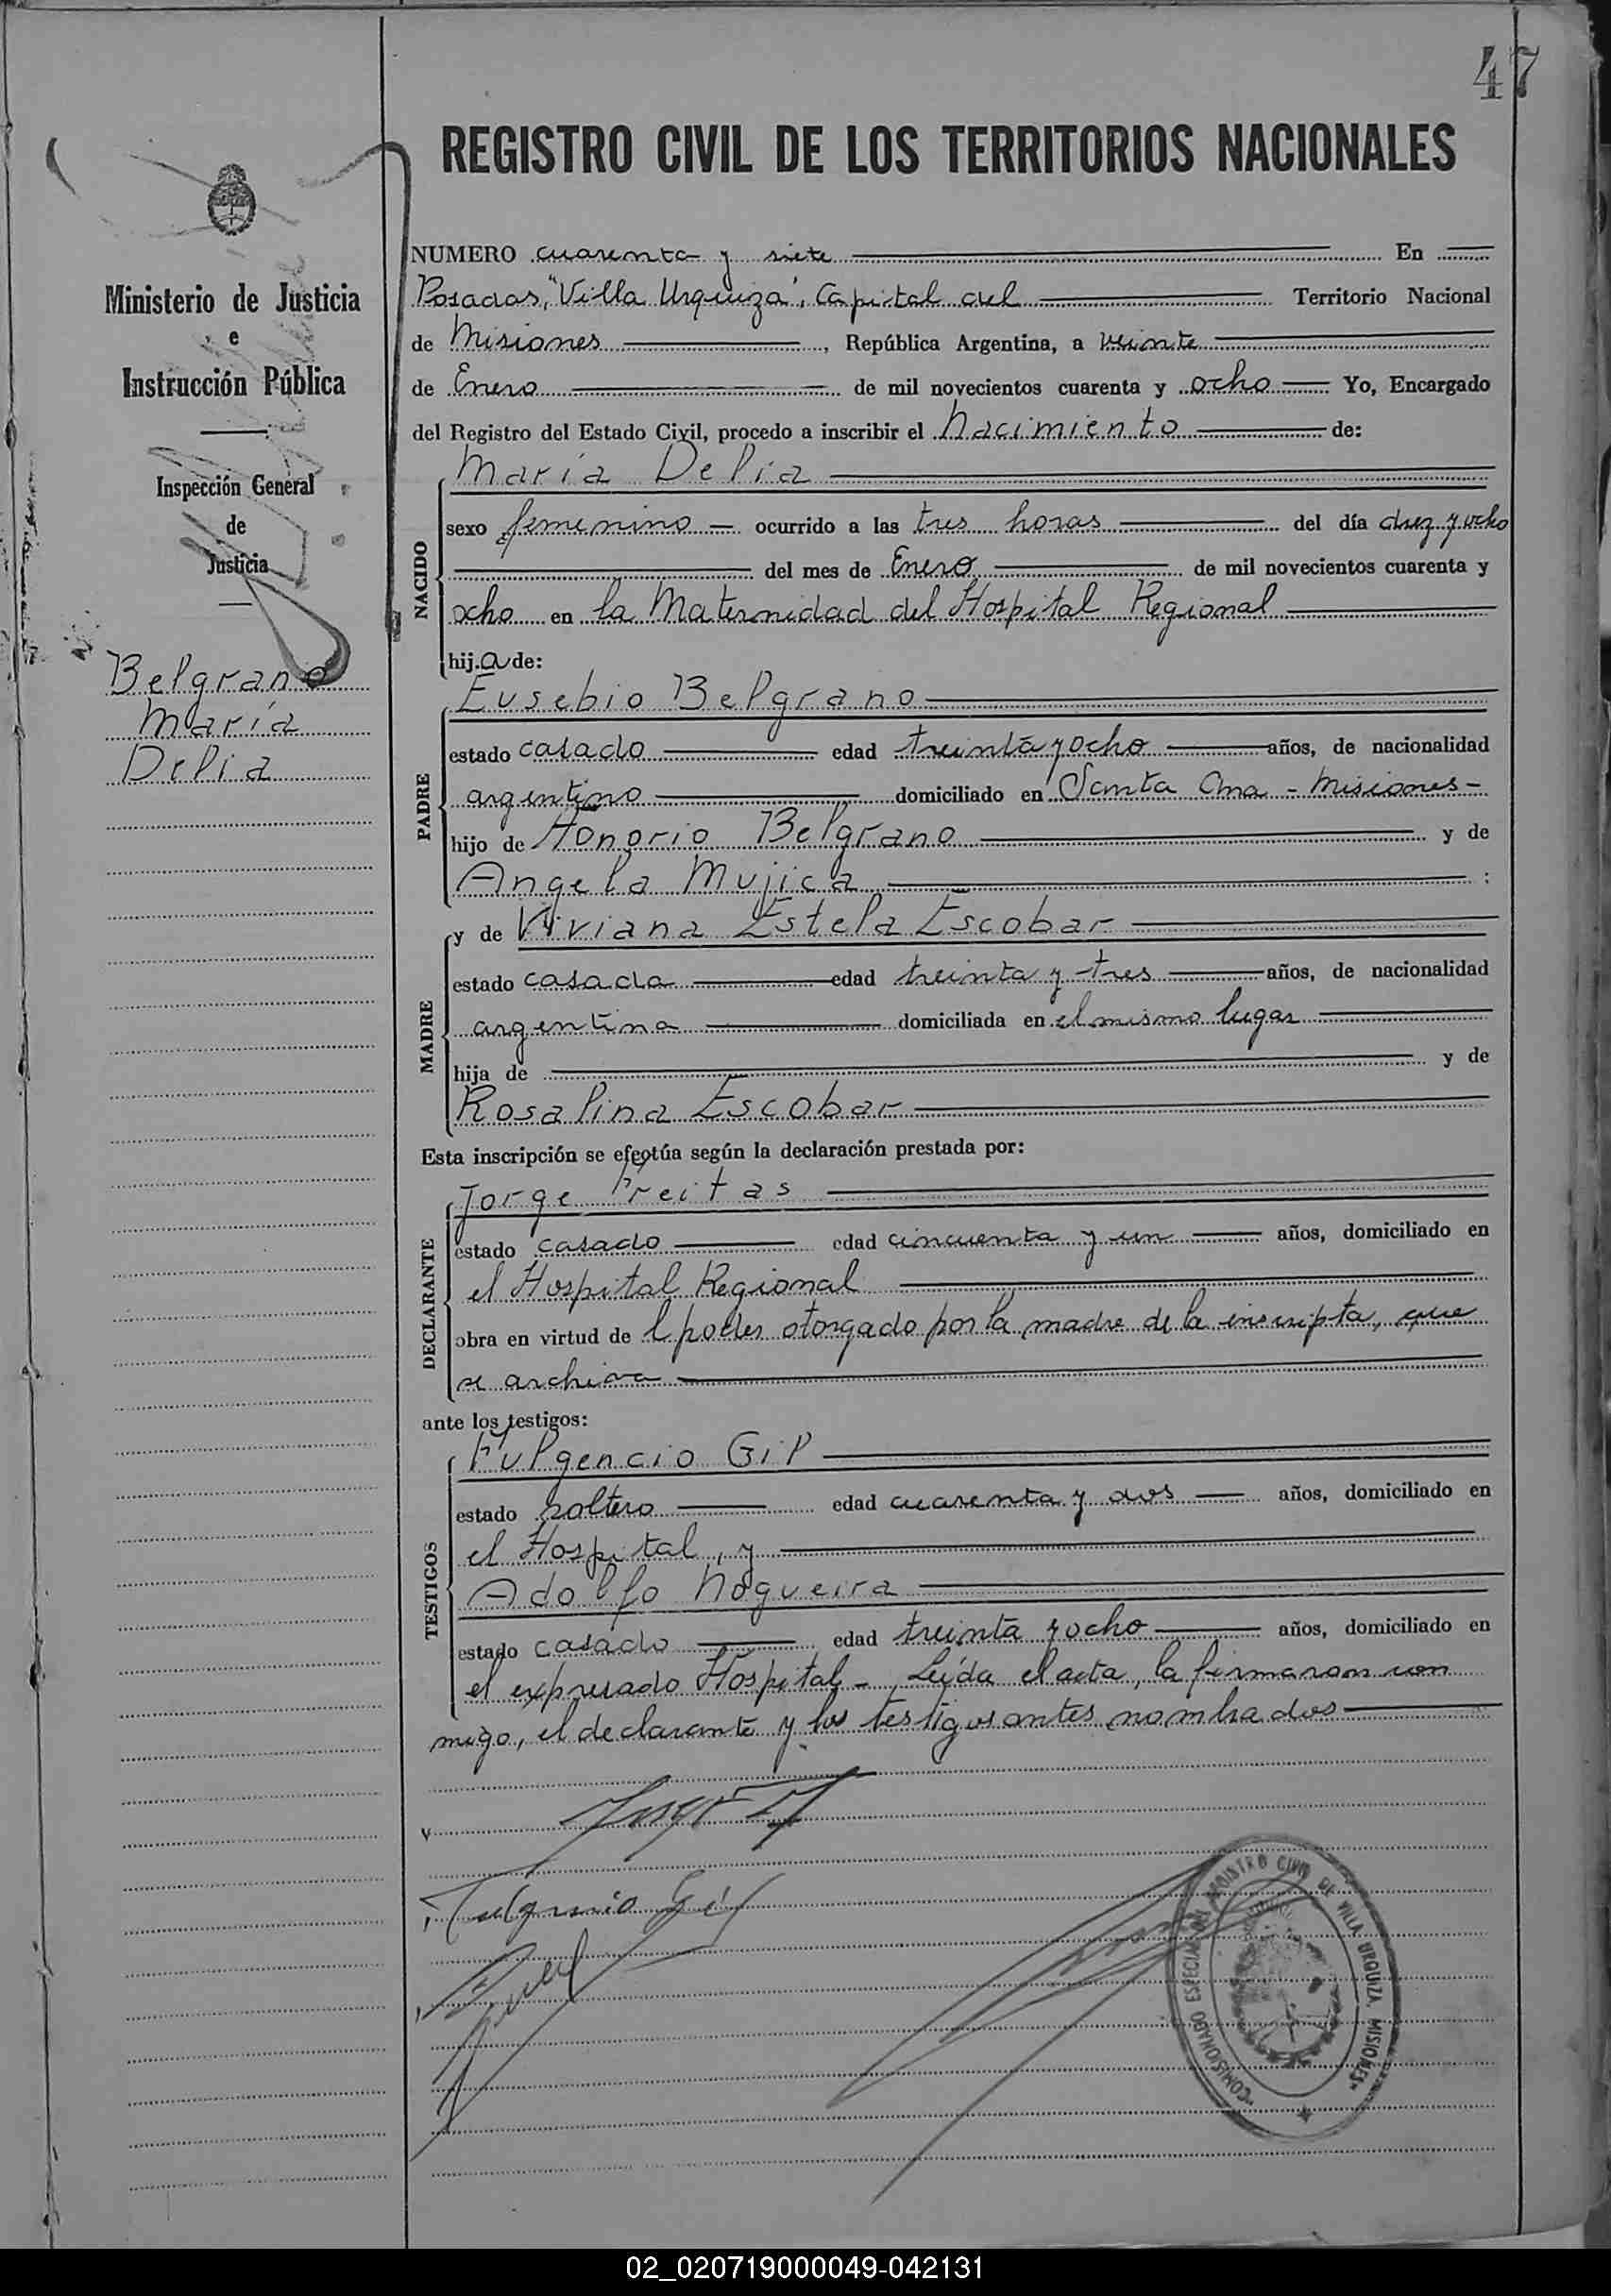 47
REGISTRO CIVIL DE LOS TERRITORIOS NACIONALES
Ministerio de Justicia
e
Instrucción Pública
Inspección General
de
Justicia
Belgrano
María
Delia
NUMERO cuarenta y siete En
Posadas, "Villa Urquiza", Capital del Territorio Nacional
de Misiones, República Argentina, a veinte
de Enero de mil novecientos cuarenta y ocho Yo, Encargado
del Registro del Estado Civil, procedo a inscribir el Nacimiento de:
NACIDO
María Delia
sexo femenino ocurrido a las tres horas del día diez y ocho
del mes de Enero de mil novecientos cuarenta y
ocho en la Maternidad del Hospital Regional
hija de:
PADRE
Eusebio Belgrano
estado casado edad treinta y ocho años, de nacionalidad
argentino domiciliado en Santa Ana - Misiones -
hijo de Honorio Belgrano y de
Angela Mujica :
MADRE
y de Viviana Estela Escobar
estado casada edad treinta y tres años, de nacionalidad
argentina domiciliada en el mismo lugar
hija de y de
Rosalina Escobar
Esta inscripción se efectúa según la declaración prestada por:
DECLARANTE
Jorge Freitas
estado casado edad cincuenta y un años, domiciliado en
el Hospital Regional
obra en virtud de l poder otorgado por la madre de la inscripta, que
se archiva
ante los testigos:
TESTIGOS
Fulgencio Gil
estado soltero edad cuarenta y dos años, domiciliado en
el Hospital, y
Adolfo Nogueira
estado casado edad treinta y ocho años, domiciliado en
el expresado Hospital - Leída el acta, la firmaron con
migo, el declarante y los testigos antes nombrados
Fulgencio Gil
"COMISIONADO ESPECIAL DEL REGISTRO CIVIL DE VILLA URQUIZA, MISIONES"
02_020719000049-042131